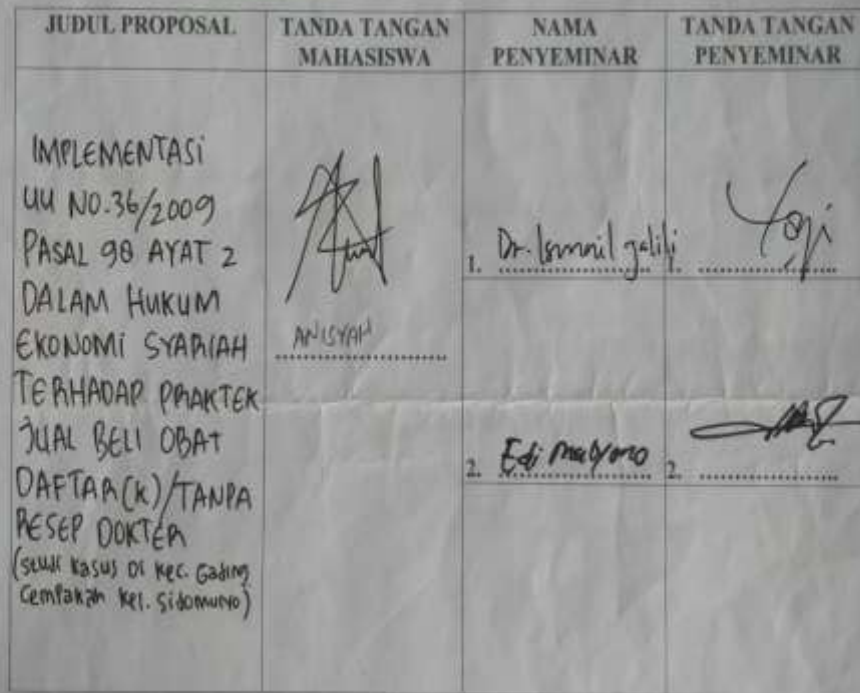 JUDUL PROPOSAL
TANDA TANGAN
MAHASISWA
NAMA
PENYEMINAR
TANDA TANGAN
PENYEMINAR
IMPLEMENTASI
UU NO.36/2009
PASAL 98 AYAT 2
DALAM HUKUM
EKONOMI SYARIAH
TERHADAP PRAKTEK
JUAL BELI OBAT
DAFTAR(K)/TANPA
RESEP DOKTER
(studi kasus Di Kec. Gading
Cempakah Kel. Sidomulyo)
ANISYAH
1. Dr. Ismail jalili
1.
2. Edi Mulyono
2.